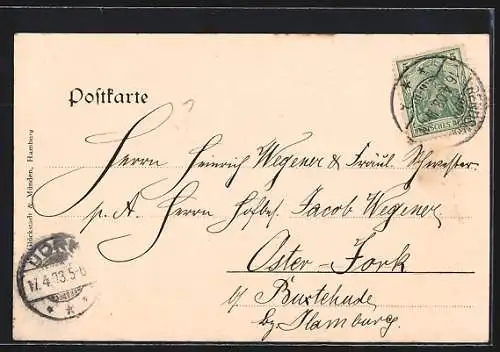 Postkarte
Herrn Heinrich Wegener & Fräul. Schwester
p. A. Herrn Hofbes. Jacob Wegener
Oster-Jork
b/ Buxtehude
bz. Hamburg.
Glückstadt & Münden, Hamburg
17.4.03.5-6
5 5